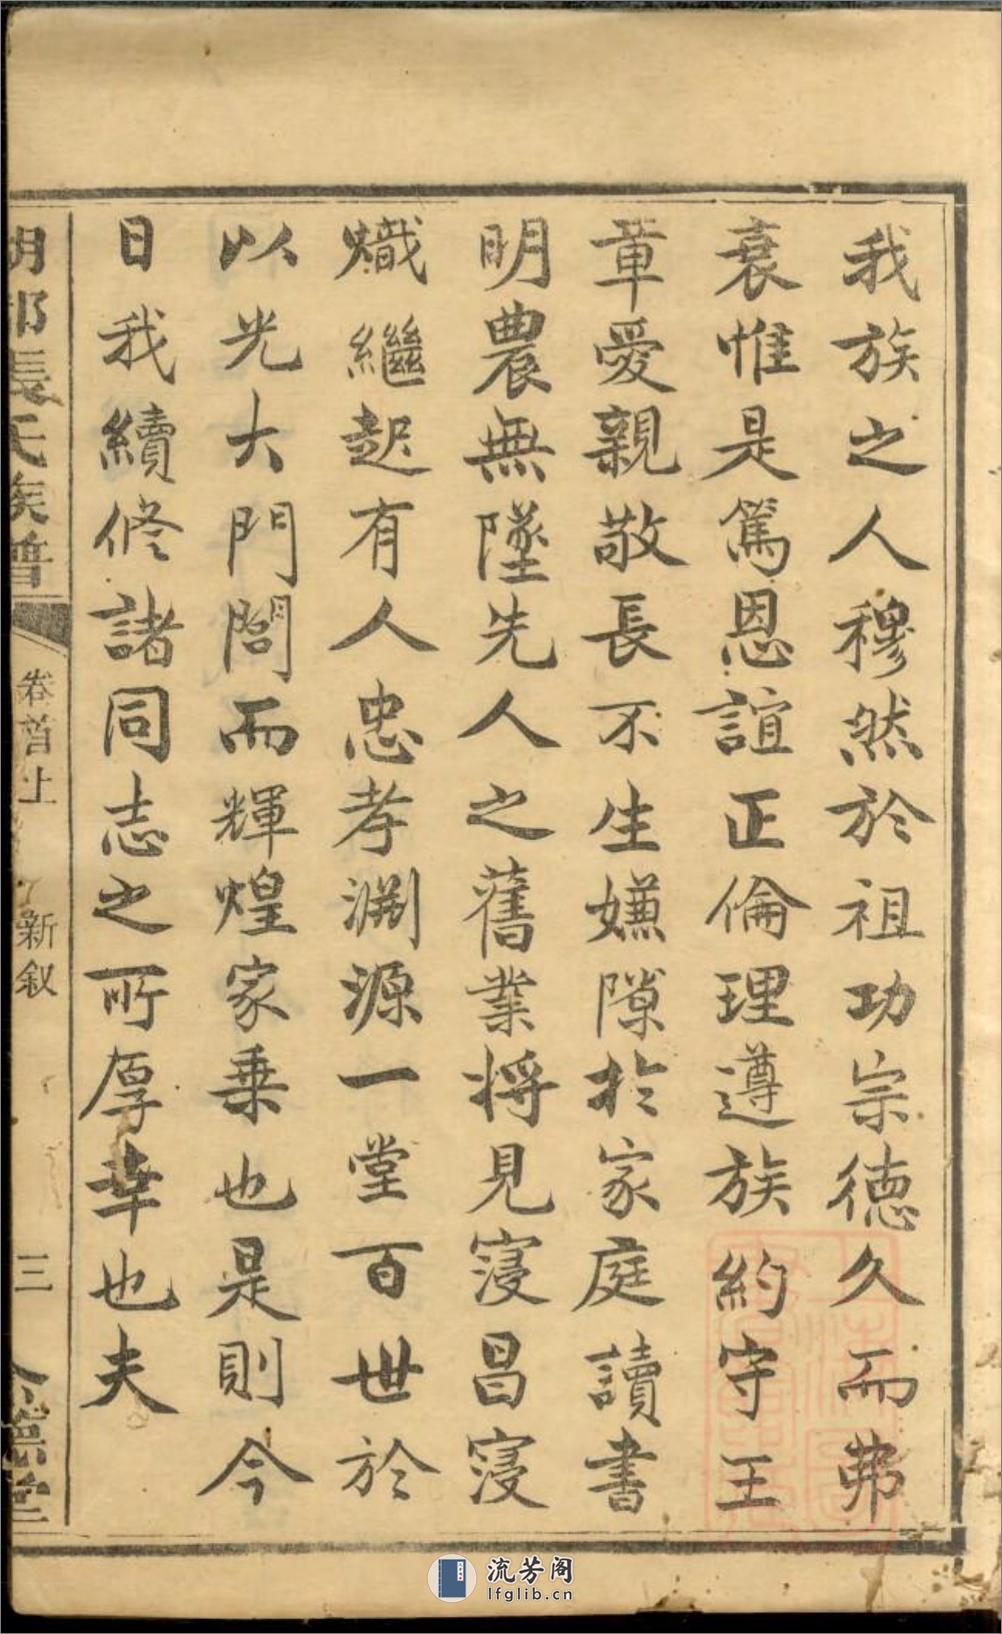 我族之人穆然於祖功宗德久而弗
衰惟是篤恩誼正倫理遵族約守王
章愛親敬長不生嫌隙於家庭讀書
明農無墜先人之舊業将見寖昌寖
熾繼起有人忠孝淵源一堂百世於
以光大門閭而輝煌家乗也是則今
日我續修諸同志之所厚幸也夫
張氏族譜
卷首上
新叙
三
德堂
流芳阁
lfglib.cn